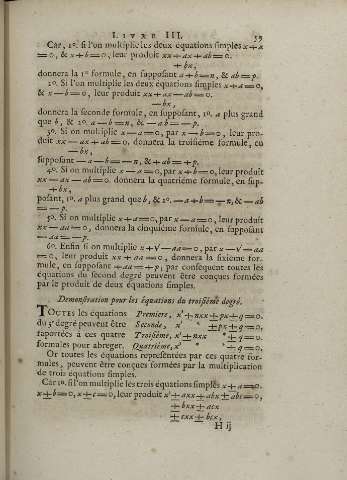 LIVRE III. 59
Car, 1º. si l'on multiplie les deux équations simples x+a
=0, & x+b=0, leur produit xx+ax+ab=0.
+bx,
donnera la 1e formule, en supposant a+b=n, & ab=p.
2º. Si l'on multiplie les deux équations simples x+a=0,
& x—b=0, leur produit xx+ax—ab=0.
—bx,
donnera la seconde formule, en supposant, 1º. a plus grand
que b, & 2º. a—b=n, & —ab=—p.
3º. Si on multiplie x—a=0, par x—b=0, leur pro-
duit xx—ax+ab=0. donnera la troisiéme formule, en
—bx,
supposant —a—b=—n, & +ab=+p.
4º. Si on multiplie x—a=0, par x+b=0, leur produit
xx—ax—ab=0. donnera la quatriéme formule, en sup-
+bx,
posant, 1º. a plus grand que b, & 2º. —a+b=—n, & —ab
=—p.
5º. Si on multiplie x+a=0, par x—a=0, leur produit
xx—aa=0, donnera la cinquiéme formule, en supposant
—aa=—p.
6º. Enfin si on multiplie x+V—aa=0, par x—V—aa
=0, leur produit xx+aa=0, donnera la sixiéme for-
mule, en supposant +aa=+p; par consequent toutes les
équations du second degré peuvent être conçues formées
par le produit de deux équations simples.
Demonstration pour les équations du troisiéme degré.
TOUTES les équations Premiere, x³+nxx±px±q=0.
du 3e degré peuvent être Seconde, x³ * ±px±q=0.
raportées à ces quatre Troisiéme, x³+nxx * ±q=0.
formules pour abreger. Quatriéme, x³ * * ±q=0.
Or toutes les équations representées par ces quatre for-
mules, peuvent être conçues formées par la multiplication
de trois équations simples.
Car 1º. si l'on multiplie les trois équations simples x±a=0.
x±b=0, x±c=0, leur produit x³±axx±abx±abc=0,
±bxx±acx
±cxx±bcx,
H ij